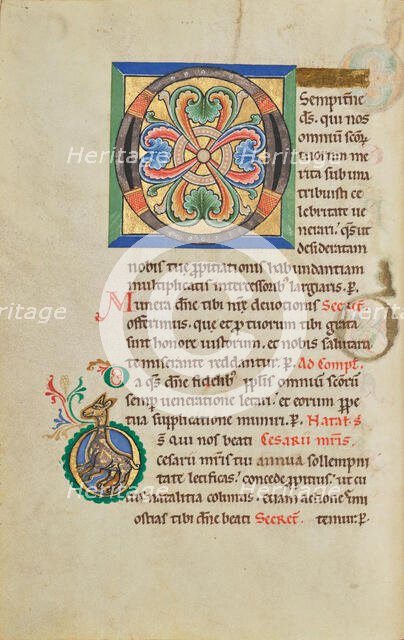 Sempit̄ne
ds. qui nos
omniū sc̄oꝝ
tuoꝝ me
rita sub una
tribuisti ce
lebritate ue
nerari. q̄s ut
desideratam
nobis tuę ꝓpitiationis habundantiam
multiplicatis intercessorib; largiaris. ꝑ.
Munera dn̄e tibi nr̄ę deuotionis Secret̄
offerimus. que et ꝓ tuorum tibi grata
sint honore iustorum. et nobis salutaria
te miserante reddantur. ꝑ. Ad Compl̄.
Da q̄s dn̄e fidelib; ppl̄is omniū sc̄orū
semꝑ ueneratione letari. et eorum ꝑpe
tua supplicatione muniri. ꝑ. Natal̄ s̄
Ds qui nos beati Cesarii mr̄is.
cesarii mr̄is tui annua sollempni
tate letificas. concede ꝓpitius. ut cu
ius natalitia colimus. etiam actiones imi
Hostias tibi dn̄e beati Secret̄ temur. ꝑ.
Heritage
Heritage
Heritage
Heritage
Heritage
Heritage
Heritage